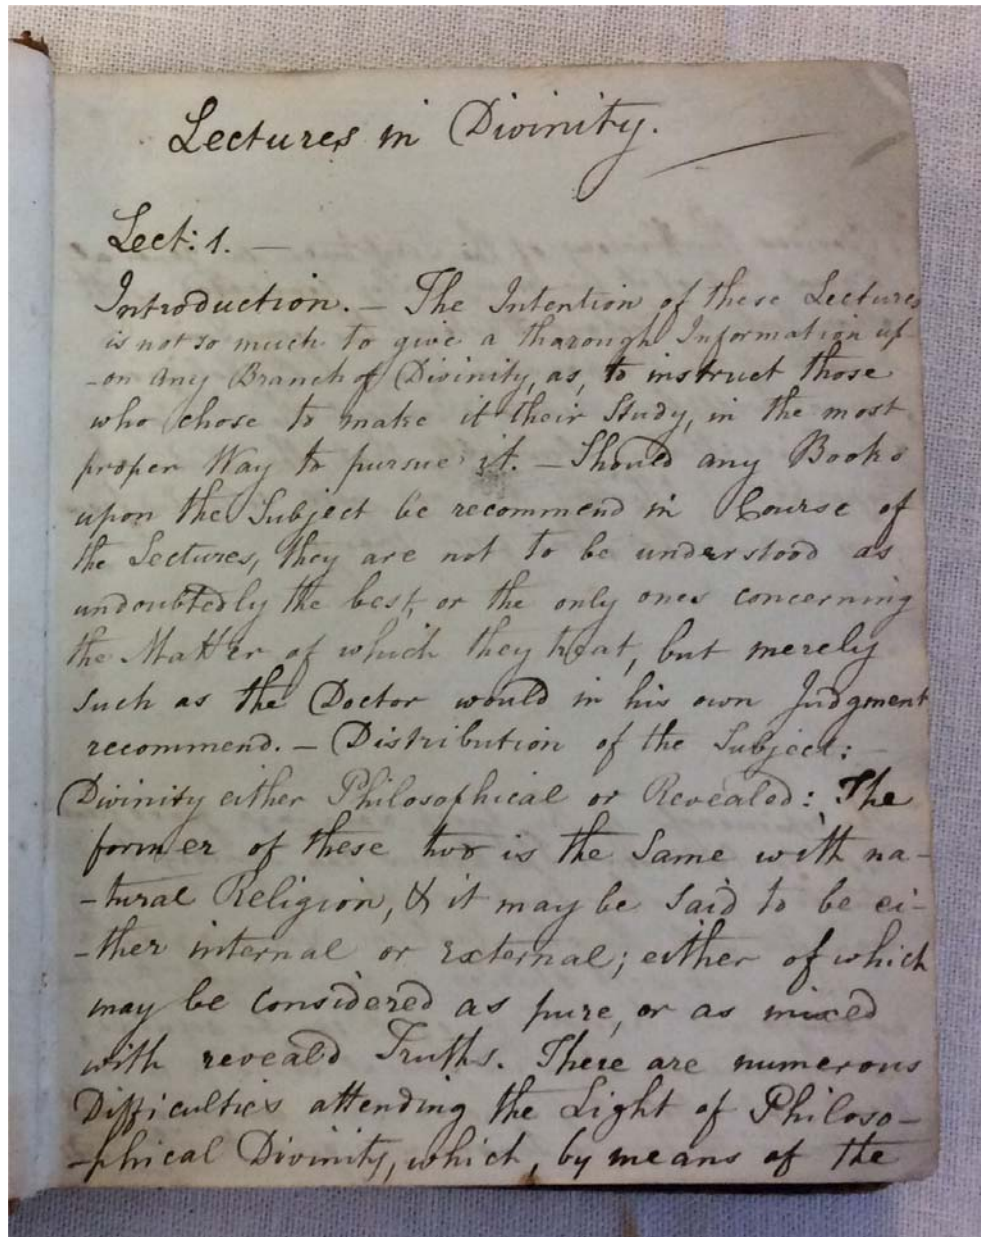 Lectures in Divinity.
Lect: 1. —
Introduction. — The Intention of these Lectures
is not so much to give a thorough Information up-
-on any Branch of Divinity, as, to instruct those
who chose to make it their Study, in the most
proper Way to pursue it. — Should any Books
upon the Subject be recommend in Course of
the Lectures, they are not to be understood as
undoubtedly the best, or the only ones concerning
the Matter of which they treat, but merely
such as the Doctor would in his own Judgment
recommend. — Distribution of the Subject: —
Divinity either Philosophical or Revealed: The
former of these two is the Same with na-
-tural Religion, & it may be said to be ei-
-ther internal or external; either of which
may be considered as pure, or as mixed
with reveald Truths. There are numerous
Difficulties attending the Light of Philoso-
-phical Divinity, which, by means of the